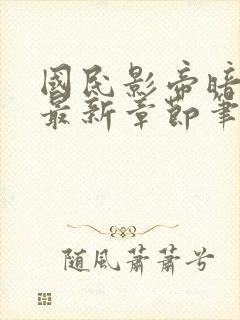 國民影帝暗
最新章節筆
随風蕭蕭兮